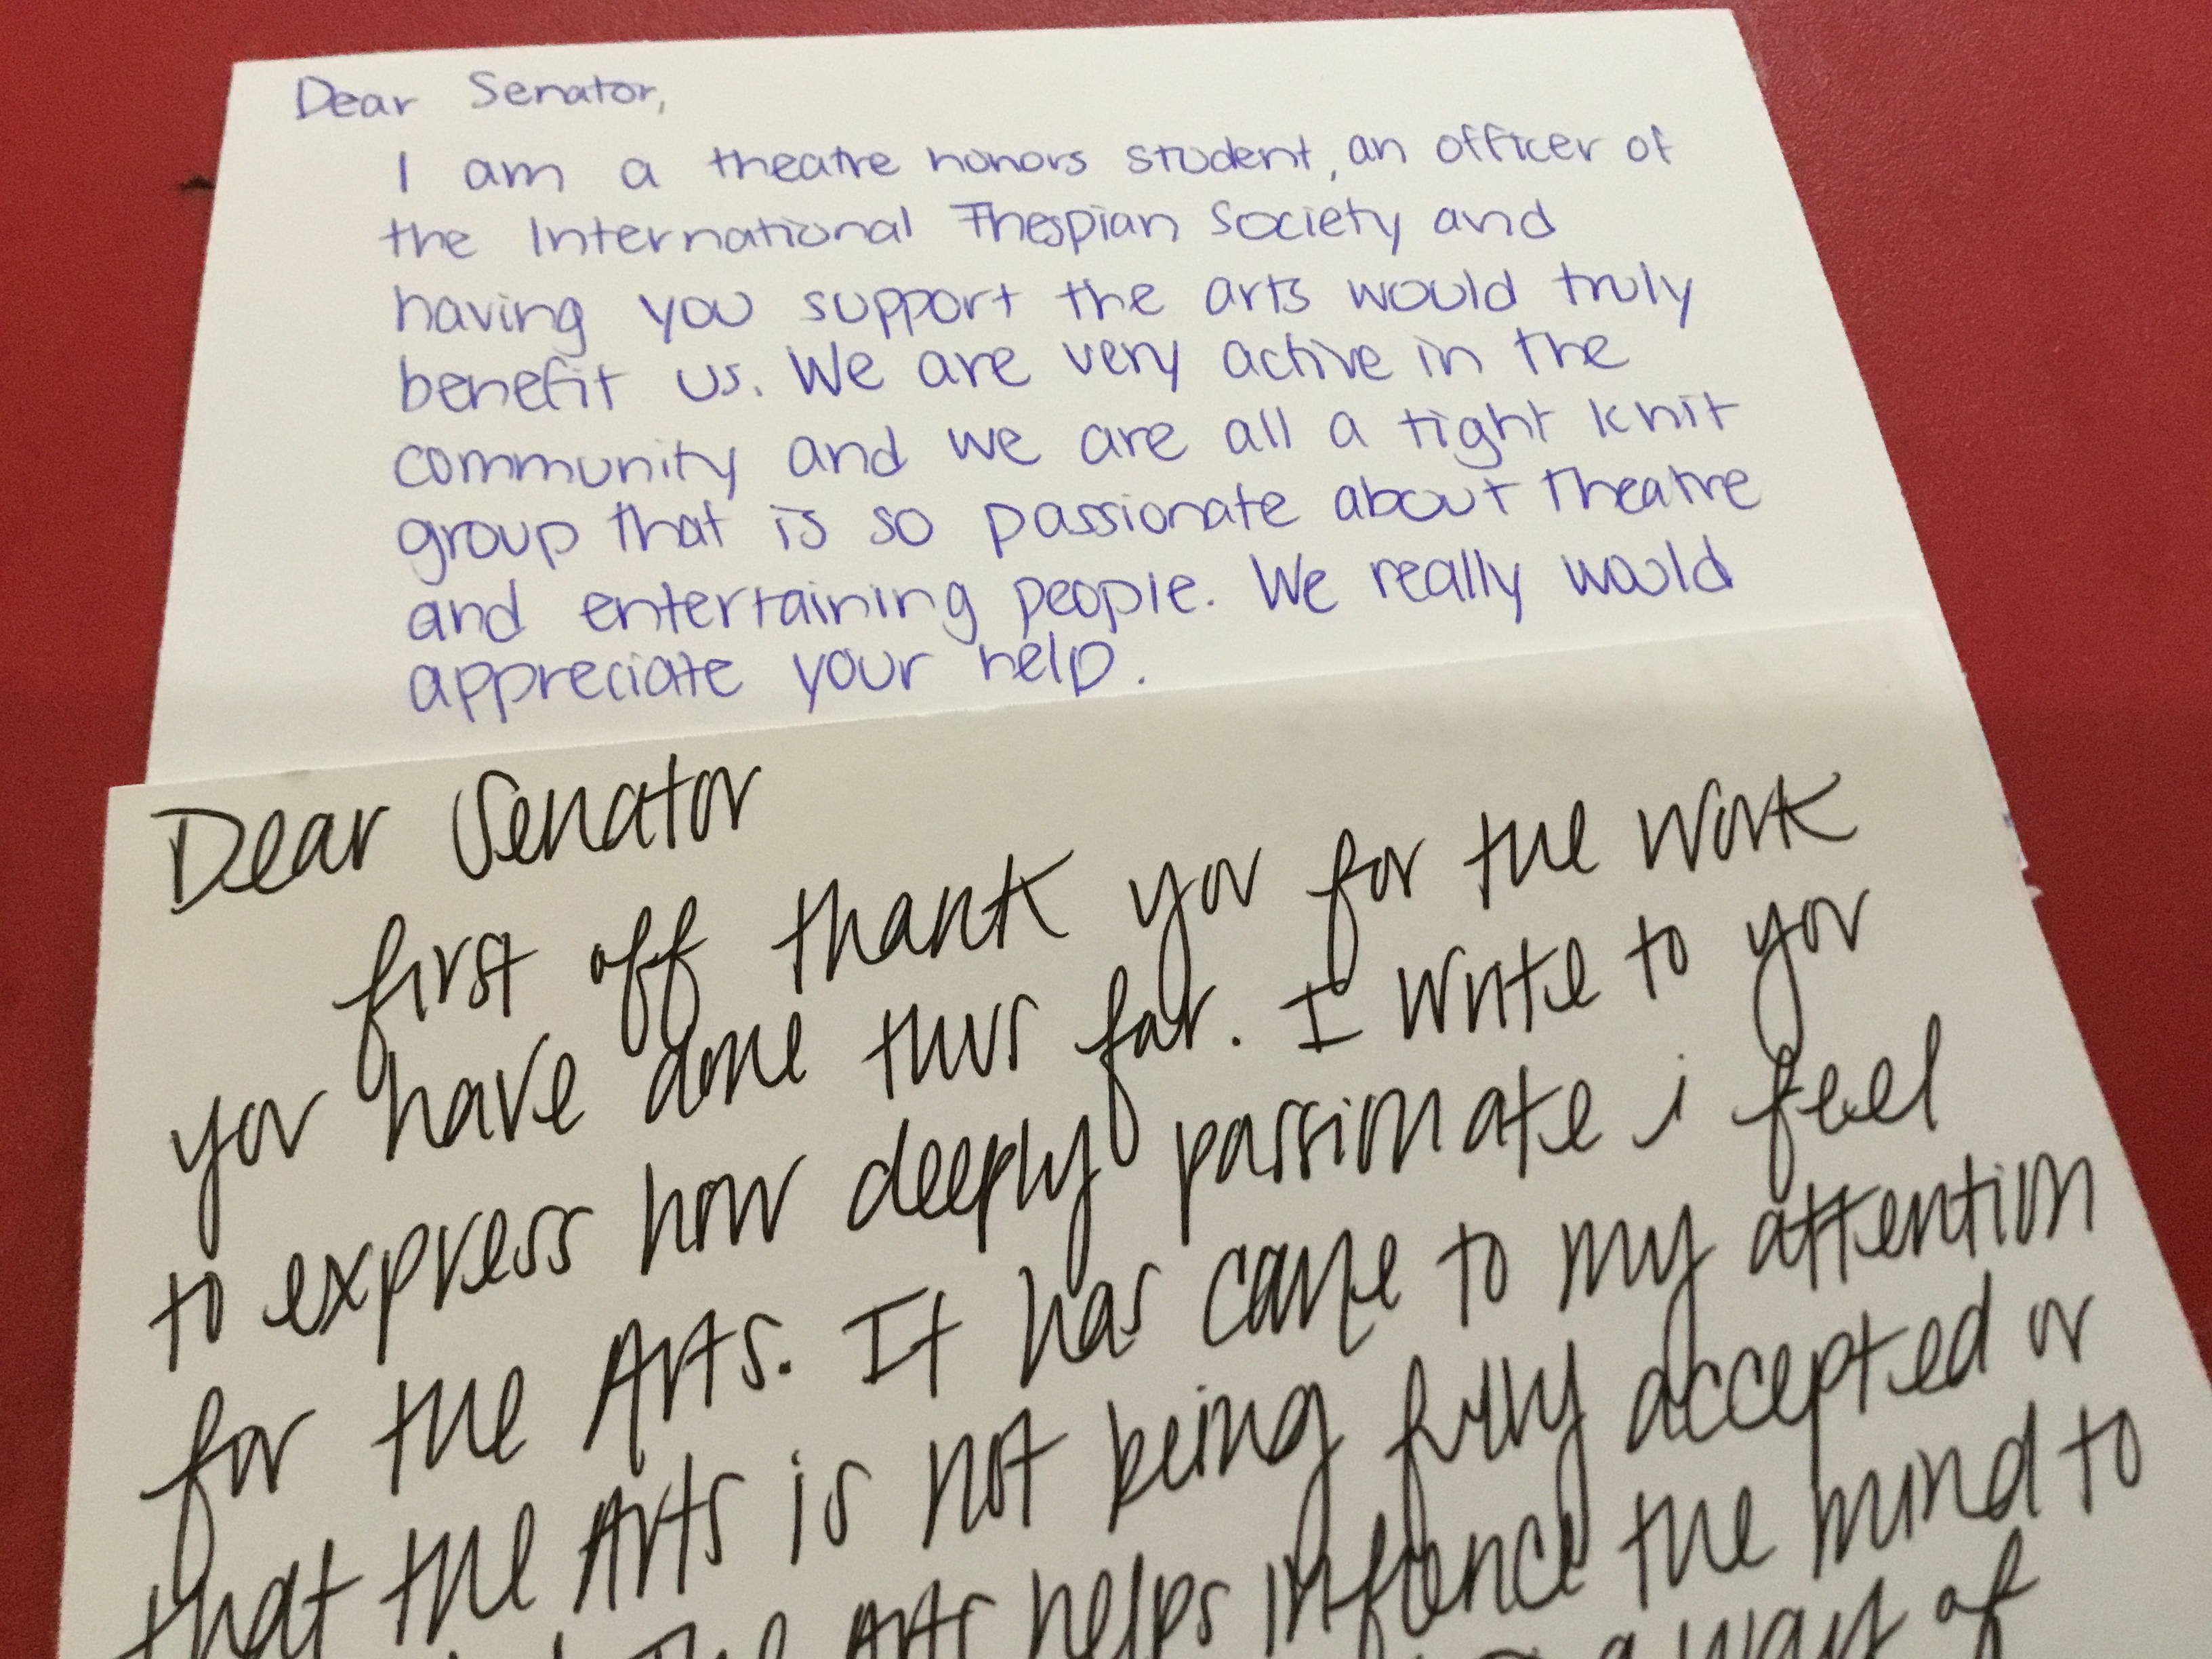 Dear Senator,
I am a theatre honors student, an officer of
the International Thespian Society and
having you support the arts would truly
benefit us. We are very active in the
community and we are all a tight knit
group that is so passionate about theatre
and entertaining people. We really would
appreciate your help.
Dear Senator
first off thank you for the work
you have done thus far. I write to you
to express how deeply passionate i feel
for the Arts. It has came to my attention
that the Arts is not being fully accepted or
The Arts helps infuence the mind to
a way of